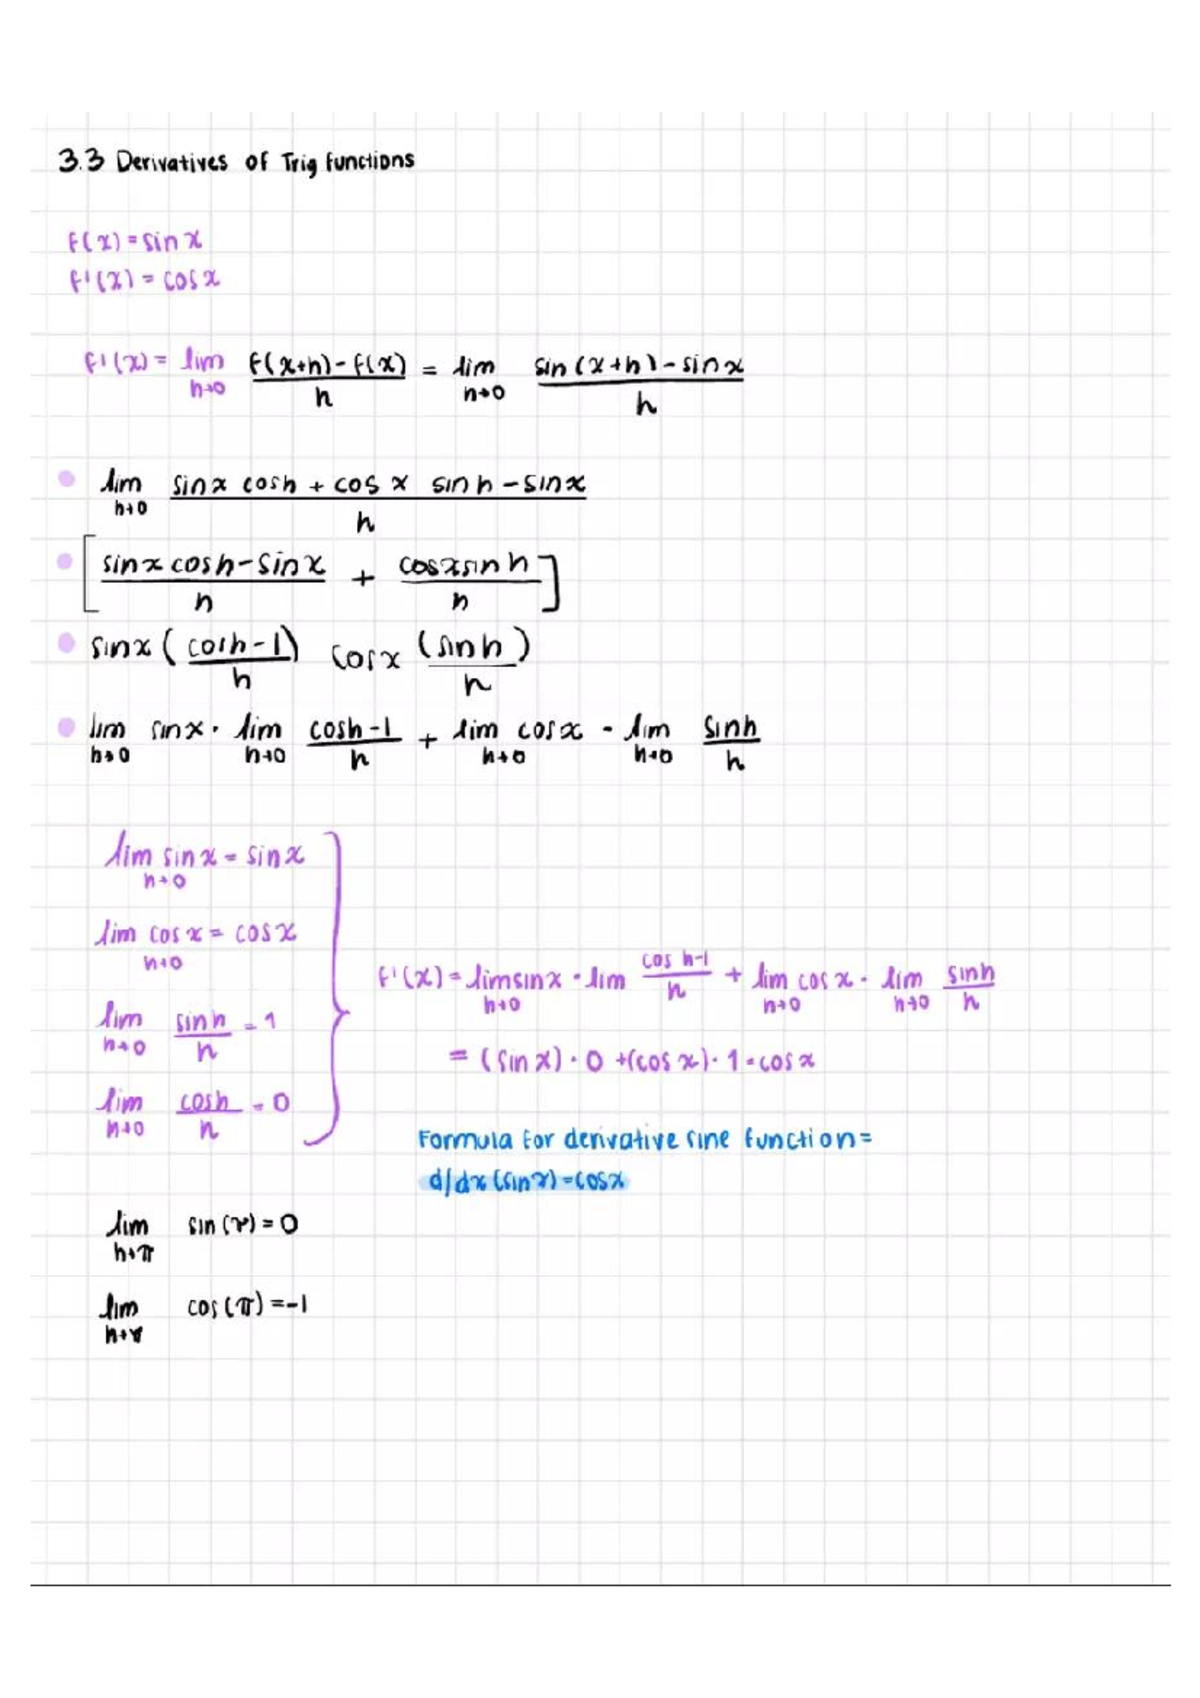 3.3 Derivatives of Trig functions
f(x) = sin x
f'(x) = cos x
f'(x) = lim h→0 f(x+h) - f(x) / h = lim h→0 sin(x+h) - sin x / h
• lim h→0 sin x cos h + cos x sin h - sin x / h
• [ sin x cos h - sin x / h + cos x sin h / h ]
• sin x ( cos h - 1 / h ) cos x ( sin h / h )
• lim h→0 sin x · lim h→0 cos h - 1 / h + lim h→0 cos x · lim h→0 sin h / h
lim h→0 sin x = sin x
lim h→0 cos x = cos x
lim h→0 sin h / h = 1
lim h→0 cos h / h = 0
f'(x) = lim h→0 sin x · lim cos h-1 / h + lim h→0 cos x · lim h→0 sin h / h
= (sin x) · 0 + (cos x) · 1 = cos x
Formula for derivative sine function =
d/dx (sin x) = cos x
lim h→π sin (π) = 0
lim h→π cos (π) = -1